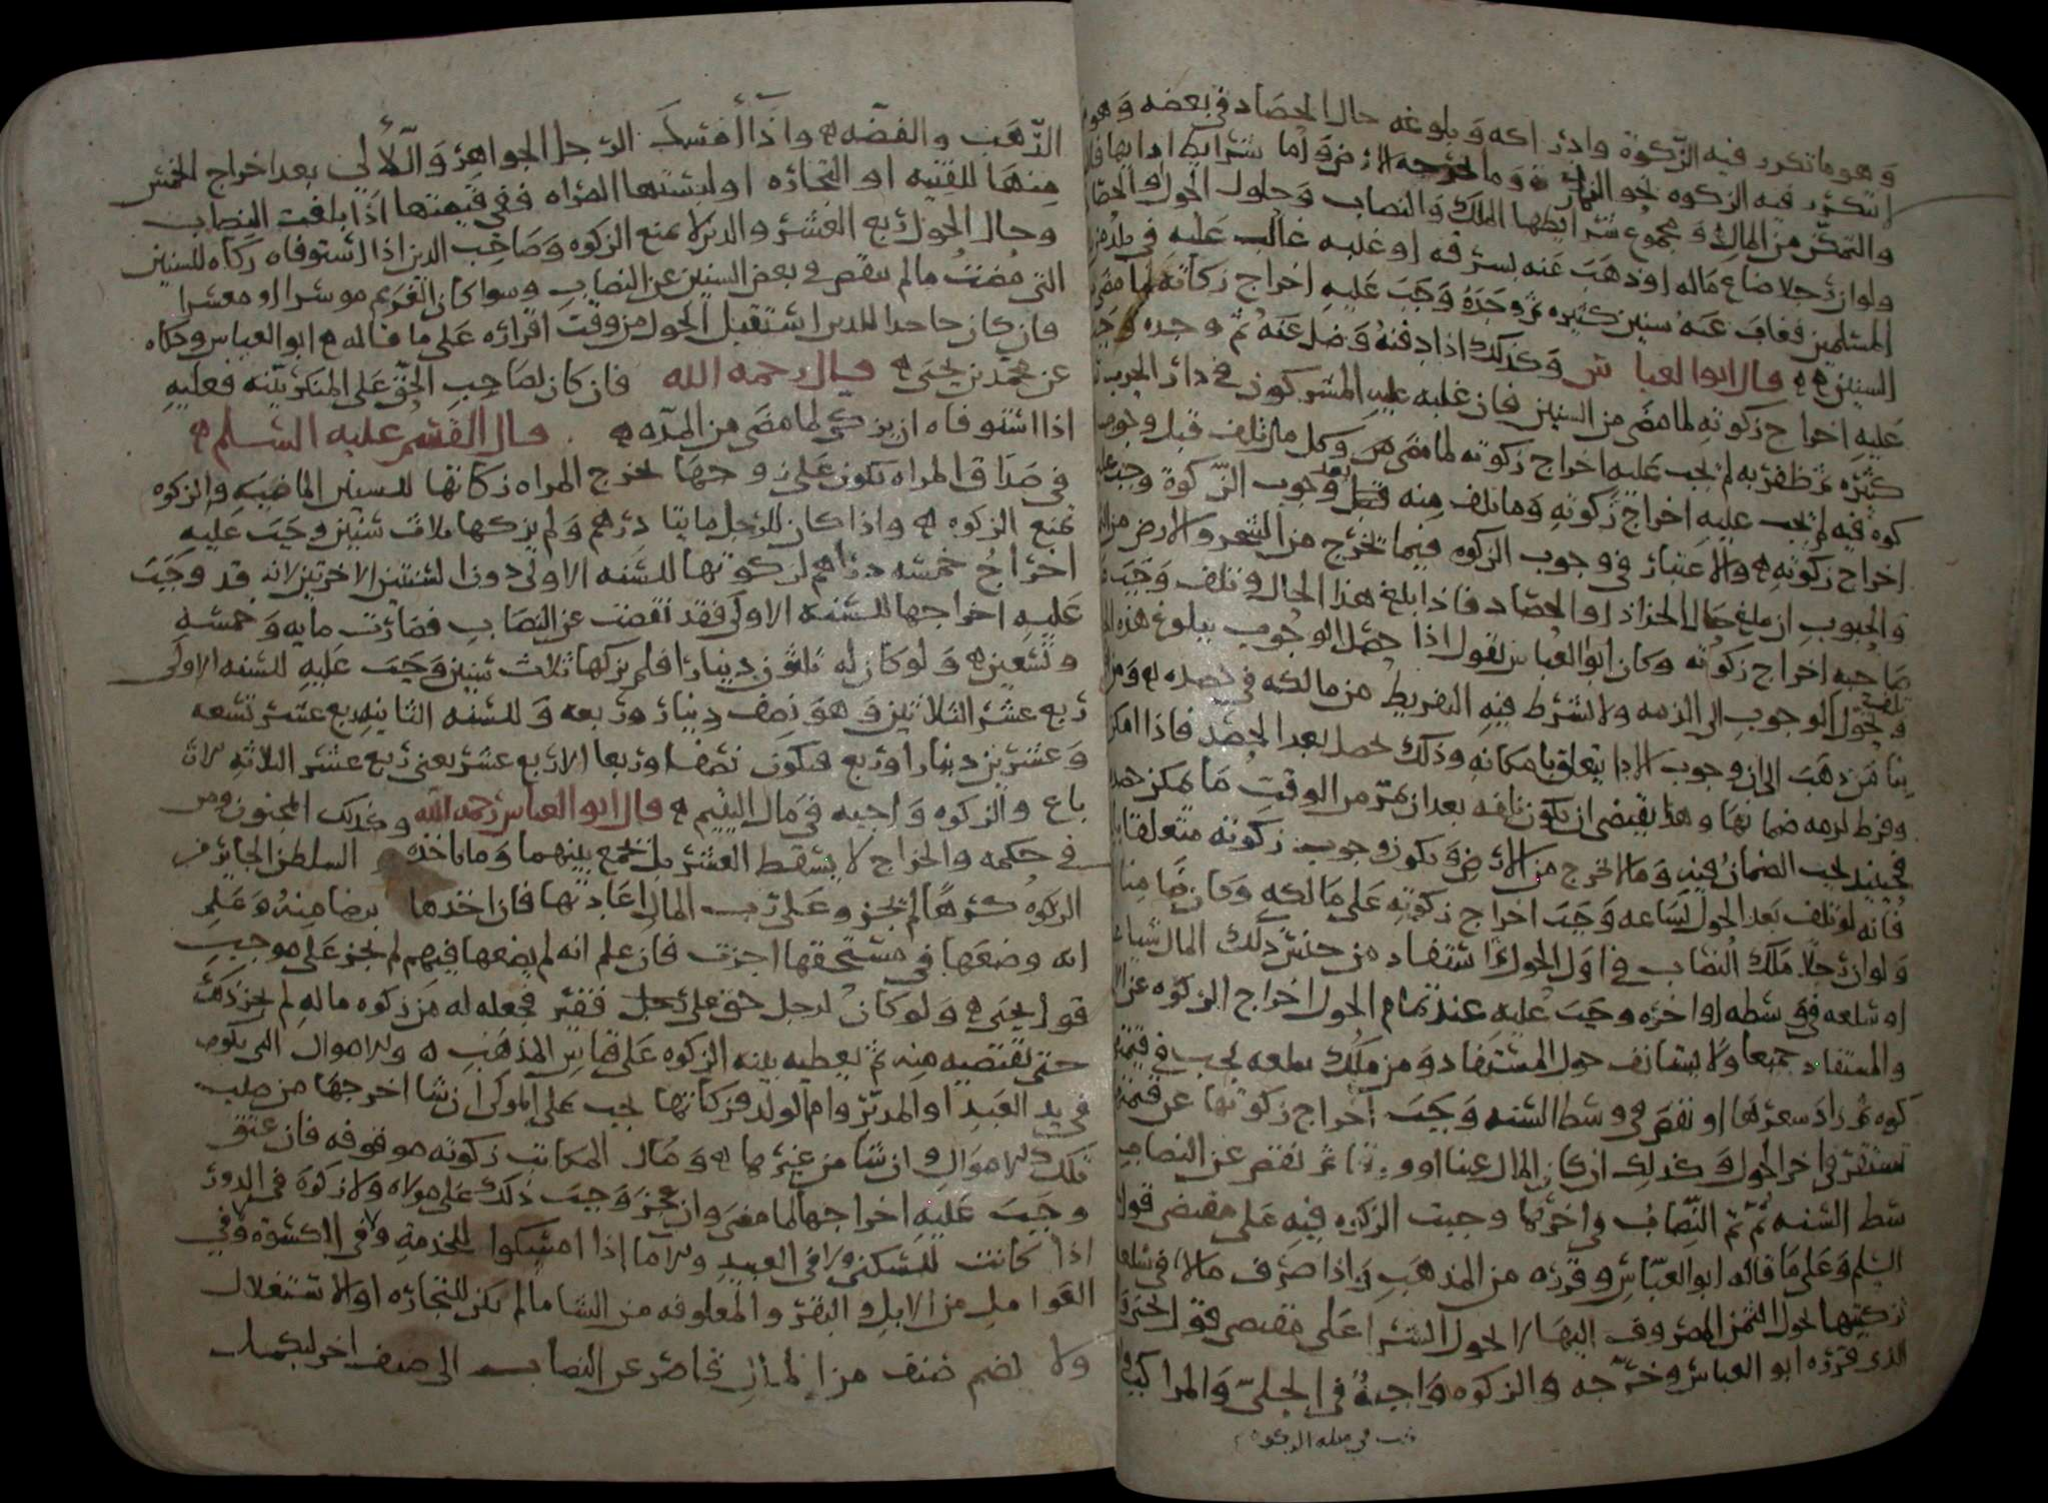 وهو ما تكرر فيه الزكوة وادراكه وبلوغه حال الحصاد في بعضه وهو
يتكرر فيه الزكوه نحو الثمار وما تخرجه الارض واما شرايط ادايها
والتمكن من المال ومجموع شرايطها الملك والنصاب وحلول الحول والحصاد
ولو ان رجلا ضاع ماله او ذهب عنه بسرقه او غلبه غالب عليه في بلد
المسلمين فغاب عنه سنين كثيره ثم وجده وجب عليه اخراج زكاته لما مضى
السنين ه قال ابو العباس وكذلك اذا دفنه وضل عنه ثم وجده
عليه اخراج زكوته لما مضى من السنين فان غلبه عليه المشركون في دار الحرب
كثيره ثم ظفر به لم يجب عليه اخراج زكوته لما مضى وكل مال تلف قبل وجوب
كوه فيه لم يجب عليه اخراج زكوته وما تلف منه بعد وجوب الزكوة وجب
اخراج زكوته ه والاعتبار في وجوب الزكوه فيما تخرج من الشجر والارض من
والحبوب ان يبلغ حال الجذاذ او الحصاد فاذا بلغ هذا الحال وتلف وجب
صاحبه اخراج زكوته وكان ابو العباس يقول اذا حصل الوجوب ببلوغ هذه
وتحول الوجوب الى الذمه ولا يشترط فيه التفريط من مالكه في
بنا من ذهب الى ان وجوب الادا يتعلق بامكانه وذلك يحصل بعد الحصد فاذا امكن
وفرط لزمه ضمانها وهذا يقتضي ان يكون تلفه بعد ان يمر من الوقت ما يمكن
فحينيذ يجب الضمان فيه وما لا تخرج من الارض ويكون وجوب زكوته متعلقا
فانه لو تلف بعد الحول لساعه وجب اخراج زكوته على مالكه وكان ضامنا
ولو ان رجلا ملك النصاب في اول الحول ثم استفاد من جنس ذلك المال شيا
او سلعه في وسطه او اخره وجب عليه عند تمام الحول اخراج الزكوه عن
والمستفاد جميعا ولا يستانف حول المستفاد ومن ملك سلعه تجب في قيمتها
كوه ثم زاد سعرها او نقص في وسط السنه وجب اخراج زكوتها عن قيمتها
تستقر في اخر الحول وكذلك ان كان المال عينا او ثم نقص عن النصاب
سط السنه ثم تم النصاب في اخرها وجبت الزكوه فيه على مقتضى قول
السلم وعلى ما قاله ابو العباس وقرره من المذهب واذا صرف مالا في سلعه
تزكيتها لحول الثمن المصروف اليها لا لحول الشرا على مقتضى قول يحيى
الذي قرره ابو العباس وخرجه والزكوه واجبة في الحلي والمراكب
الذهب والفضه ه واذا امسك الرجل الجواهر واللألي بعد اخراج الخمس
منها للقنيه او التجاره او لبستها المراه ففي قيمتها اذا بلغت النصاب
وحال الحول ربع العشر والدين لا يمنع الزكوه وصاحب الدين اذا استوفاه زكاه للسنين
التي مضت ما لم ينقص في بعض السنين عن النصاب وسوا كان الغريم موسرا او معسرا
فان كان جاحدا للدين استقبل الحول من وقت اقراره على ما قاله ابو العباس وحكاه
عن محمد بن يحيى ه قال رحمه الله فان كان لصاحب الحق على المنكر بينه فعليه
اذا استوفاه ان يزكي لما مضى من المده ه قال القسم عليه السلم ه
في صداق المراه يكون على زوجها تخرج المراه زكاتها للسنين الماضيه والزكوه
تمنع الزكوه ه واذا كان للرجل مايتا درهم ولم يزكها ثلاث سنين وجب عليه
اخراج خمسه دراهم لزكوتها للسنه الاولى دون السنتين الاخرتين لانه قد وجب
عليه اخراجها للسنه الاولى فقد نقصت عن النصاب فصارت مايه وخمسه
وتسعين ه ولو كان له ثلثون دينارا فلم يزكها ثلاث سنين وجب عليه للسنه الاولى
ربع عشر الثلاثين وهو نصف دينار وربعه وللسنه الثانيه ربع عشر تسعه
وعشرين دينارا وربع فيكون نصفا وربعا الا ربع عشر يعني ربع عشر الثلاثه الارباع
باع والزكوه واجبه في مال اليتيم ه قال ابو العباس رحمه الله وكذلك المجنون ومن
في حكمه والخراج لا يسقط العشر بل يجمع بينهما وما ياخذه السلطن الجاير من
الزكوه كرها لم يجز وعلى رب المال اعادتها فان اخذها برضا منه وعلم
انه وضعها في مستحقها اجزت فان علم انه لم يضعها فيهم لم يجز على موجب
قول يحيى ه ولو كان لرجل حق على رجل فقير فجعله له من زكوه ماله لم يجز ذلك
حتى يقتضيه منه ثم يعطيه بنيه الزكوه على قياس المذهب ه والاموال التي تكون
في يد العبد او المدبر وام الولد فزكاتها تجب على المولى ان شا اخرجها من صلب
تلك الاموال وان شا من غيرها ه ومال المكاتب زكوته موقوفه فان عتق
وجب عليه اخراجها لما مضى وان عجز وجب ذلك على مولاه ولا زكوة في الدور
اذا كانت للسكنى ولا في العبيد والاما اذا امسكوا للخدمه ولا في الكسوة ولا في
العوامل من الابل والبقر والمعلوفه من الشا ما لم تكن للتجاره او الاستغلال
ولا يضم صنف من المال قاصر عن النصاب الى صنف اخر ليكمل